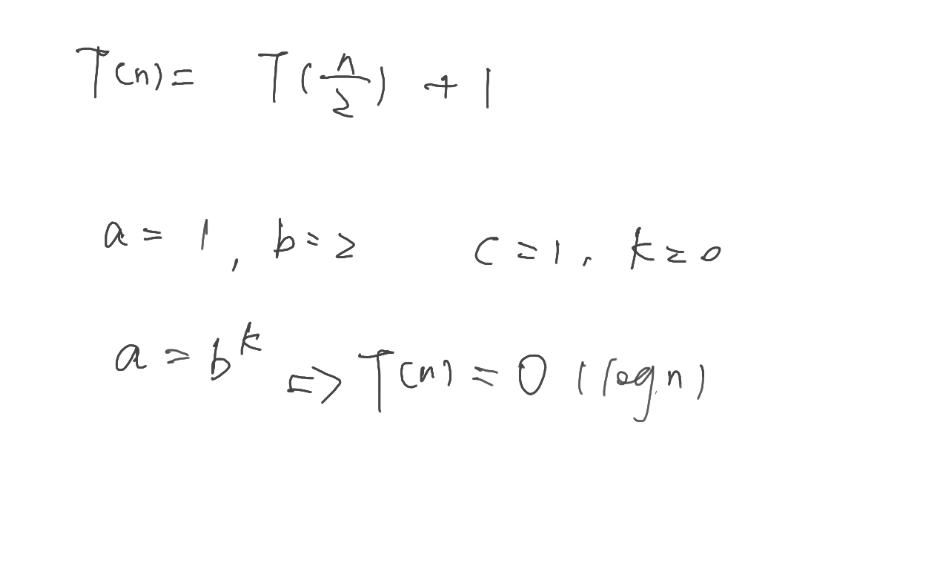 T(n) = T(n/2) + 1
a = 1, b = 2 c = 1, k = 0
a = b^k => T(n) = O(log n)